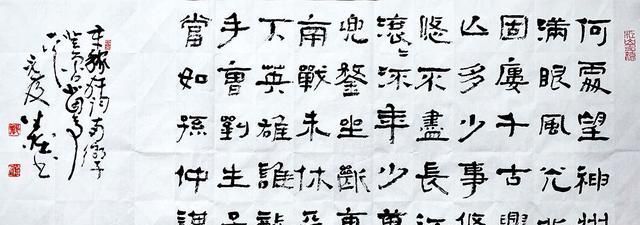 何處望神州
滿眼風光北
固廔千古興
亡多少事悠
悠不盡長江
滾〻流年少萬
兜鍪坐斷東
南戰未休天
下英雄誰敵
手曹劉生子
當如孫仲謀
辛稼軒詞南鄉子